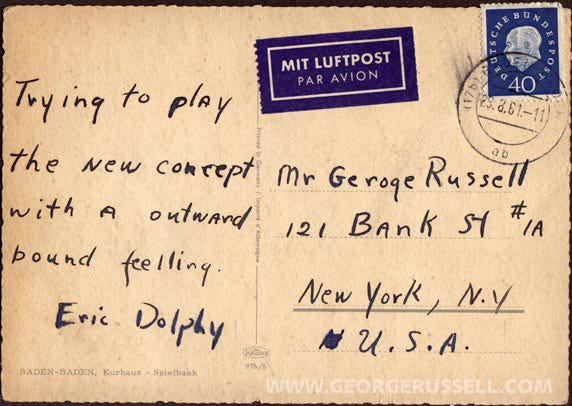 Trying to play
the new concept
with a outward
bound feelling.
Eric Dolphy
BADEN-BADEN, Kurhaus - Spielbank
Printed in Germany / Importé d'Allemagne
976/6
MIT LUFTPOST
PAR AVION
DEUTSCHE BUNDESPOST
40
29.8.61.-11
ab
Mr Geroge Russell
121 Bank St #1A
New York, N.Y
U.S.A.
WWW.GEORGERUSSELL.COM